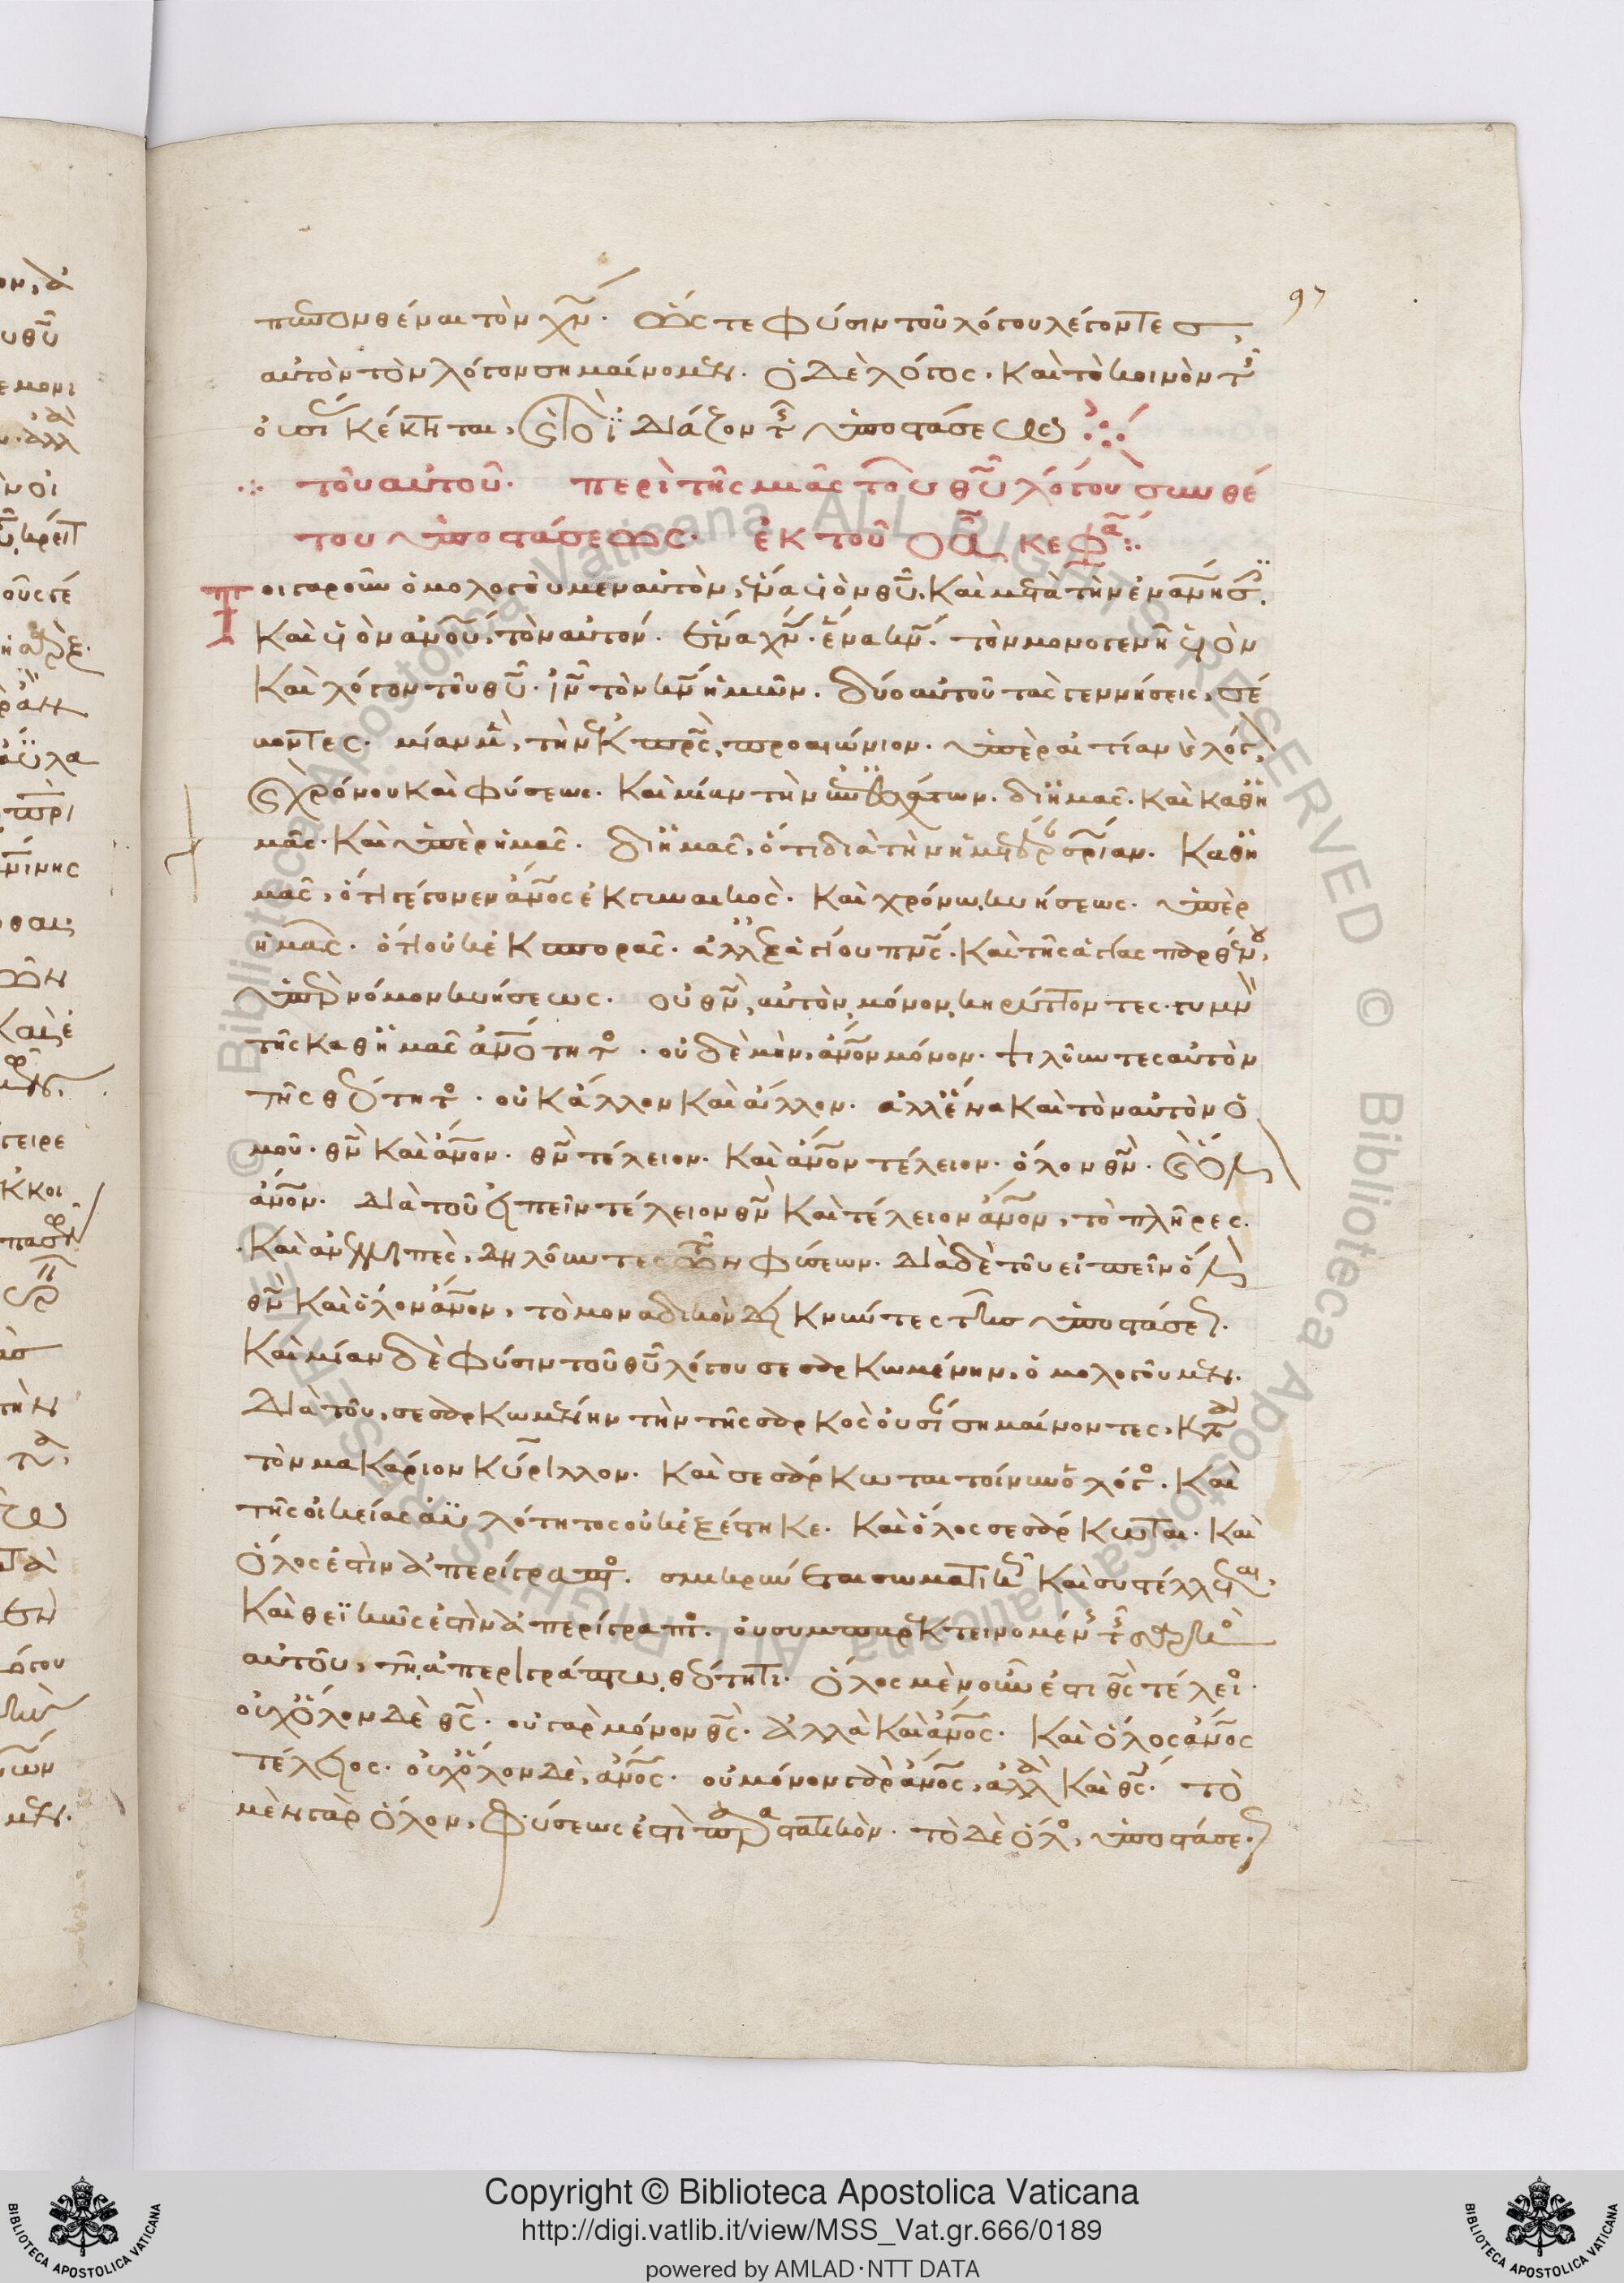 97
πεπονθέναι τὸν χν̅. ὥστε φύσιν τοῦ λόγου λέγοντες,
αὐτὸν τὸν λόγον σημαίνομεν. ὁ δὲ λόγος. καὶ τὸ κοινὸν τῆς
οὐσίας κέκτηται, καὶ τὸ ἰδιάζον τῆς ὑποστάσεως
τοῦ αὐτοῦ. περὶ τῆς μιᾶς τοῦ θυ̅ λόγου συνθέ
του ὑποστάσεως. ἐκ τοῦ να κεφα
Τοιγαροῦν ὁμολογοῦμεν αὐτὸν, ἕνα υἱὸν θυ̅. καὶ μετὰ τὴν ἐνανησ.
καὶ υἱὸν ανου̅, τὸν αὐτόν. ἕνα χν̅. ἕνα κν̅. τὸν μονογενῆ υἱὸν
καὶ λόγον τοῦ θυ̅. ιν̅ τὸν κν̅ ἡμῶν. δύο αὐτοῦ τὰς γεννήσεις, σέ
βοντες. μίαν μὲν, τὴν ἐκ πρς̅, προαιώνιον. ὑπὲρ αἰτίαν καὶ λόγον,
καὶ χρόνον καὶ φύσεως. καὶ μίαν τὴν ἐπ' ἐσχάτων. δι' ἡμᾶς. καὶ καθ' ἡ
μᾶς. καὶ ὑπὲρ ἡμᾶς. δι' ἡμᾶς, ὅτι διὰ τὴν ἡμετέραν σρίαν. καθ' ἡ
μᾶς, ὅτι γέγονεν ανος̅ ἐκ γυναικὸς. καὶ χρόνω κυήσεως. ὑπὲρ
ἡμᾶς. ὅτι οὐκ ἐκ σπορᾶς. ἀλλ' ἐξ ἁγίου πνς̅. καὶ τῆς ἁγίας παρθένου,
ὑπὲρ νόμον κυήσεως. οὐ θν̅, αὐτὸν μόνον κηρύττοντες. γυμνὸν
τῆς καθ' ἡμᾶς ανο̅τητος. οὐδὲ μὴν, ανον̅ μόνον. ψιλοῦντες αὐτὸν
τῆς θεότητος. οὐκ ἄλλον καὶ ἄλλον. ἀλλ' ἕνα καὶ τὸν αὐτὸν ὁ
μοῦ. θν̅ καὶ ανον̅. θν̅ τέλειον. καὶ ανον̅ τέλειον. ὅλον θν̅. καὶ ὅλον
ανον̅. διὰ τοῦ εἰπεῖν τέλειον θν̅ καὶ τέλειον ανον̅, τὸ πλῆρες.
καὶ ἀνελλιπὲς, δηλοῦντες τῶν φύσεων. διὰ δὲ τοῦ εἰπεῖν ὅλον
θν̅ καὶ ὅλον ανον̅, τὸ μοναδικὸν δεικνύντες τῆς ὑποστάσεως.
καὶ μίαν δὲ φύσιν τοῦ θυ̅ λόγου σεσαρκωμένην, ὁμολογοῦμεν.
διὰ τοῦ, σεσαρκωμένην τὴν τῆς σαρκὸς οὐσίαν σημαίνοντες, κατὰ
τὸν μακάριον κύριλλον. καὶ σεσάρκωται τοίνυν ὁ λόγος. καὶ
τῆς οἰκείας ἀϋλότητος οὐκ ἐξέστηκε. καὶ ὅλος σεσάρκωται. καὶ
ὅλος ἐστὶν ἀπερίγραπτος. σμικρύνεται σωματικῶς καὶ συστέλλεται.
καὶ θεϊκῶς ἐστὶν ἀπερίγραπτος. οὐ συμπαρεκτεινομένης τῆς σαρκὸς
αὐτοῦ, τῆ ἀπεριγράπτω θεότητι. ὅλος μὲν οὖν ἐστι θς̅ τέλειος.
οὐχ' ὅλον δὲ θς̅. οὐ γὰρ μόνον θς̅. ἀλλὰ καὶ ανος̅. καὶ ὅλος ανος̅
τέλειος. οὐχ' ὅλον δὲ, ανος̅. οὐ μόνον γὰρ ανος̅, ἀλλὰ καὶ θς̅. τὸ
μὲν γὰρ ὅλον, φύσεως ἐστὶ παραστατικὸν. τὸ δὲ ὅλος, ὑποστάσεως
Copyright © Biblioteca Apostolica Vaticana
http://digi.vatlib.it/view/MSS_Vat.gr.666/0189
powered by AMLAD·NTT DATA